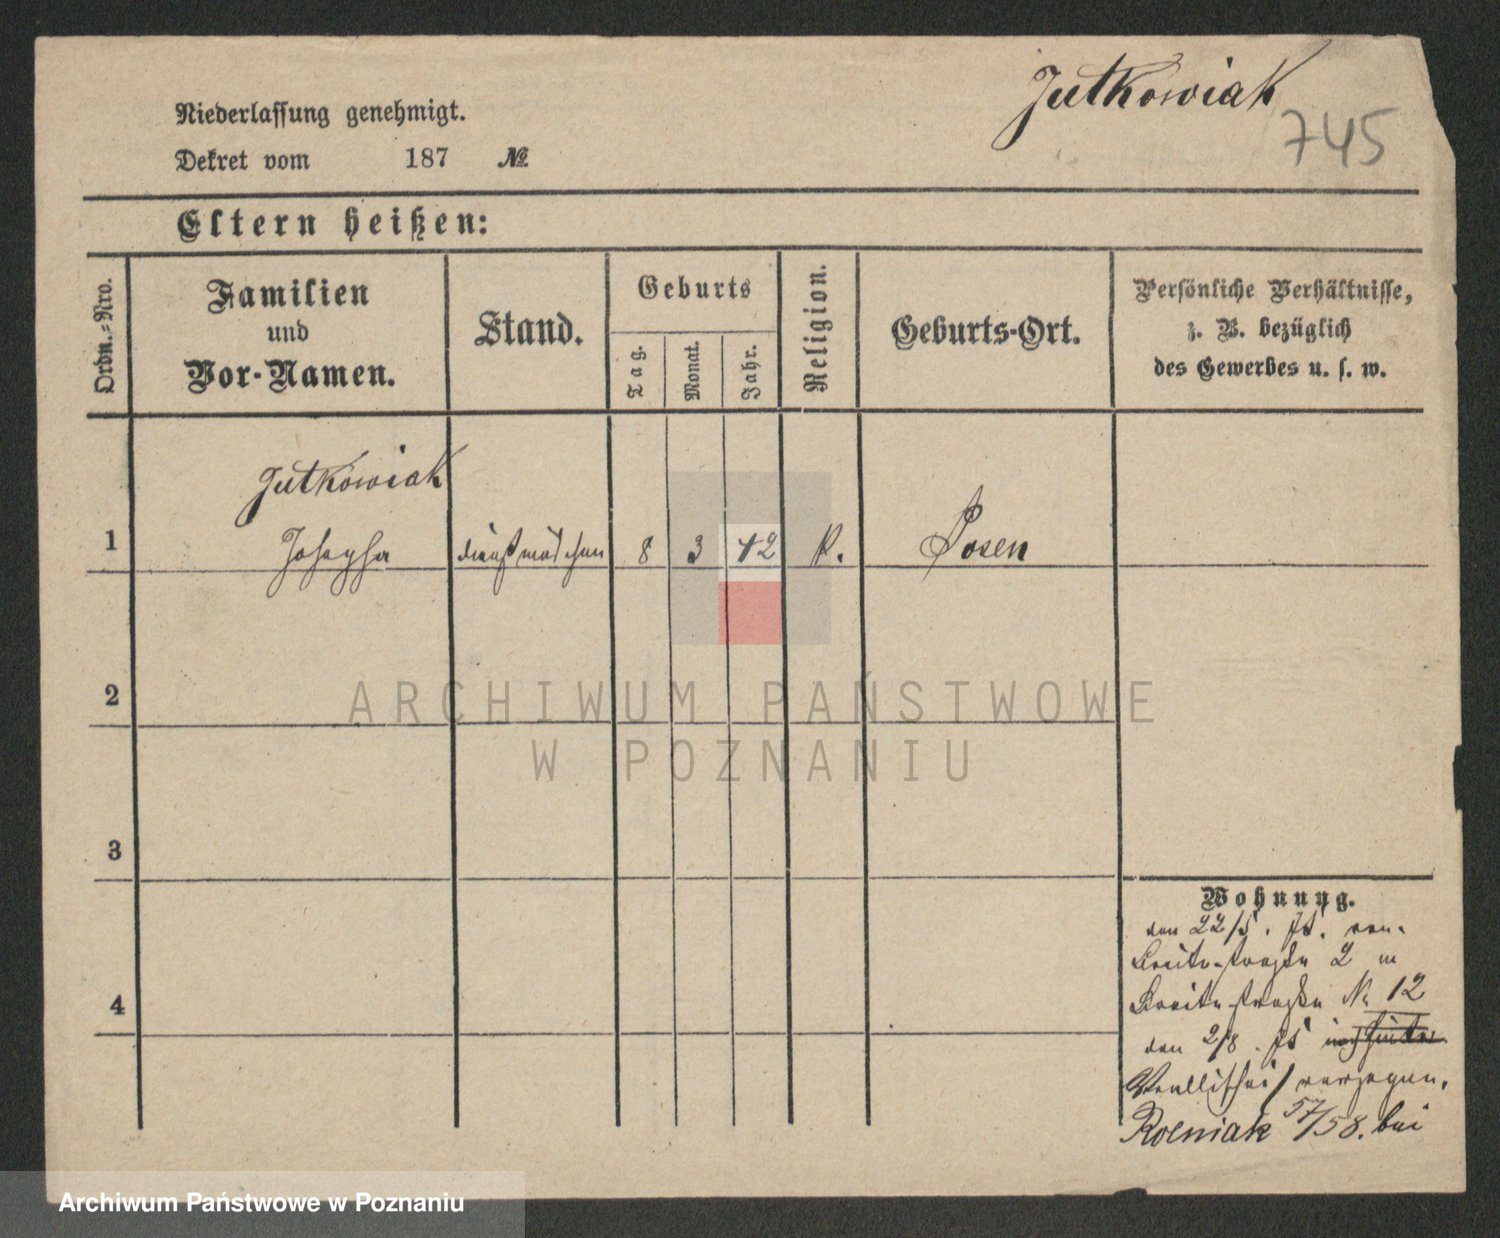 Jutkowiak
745
Niederlassung genehmigt.
Dekret vom 187 №
Eltern heißen:
Ordn.-Nro.
Familien
und
Vor-Namen.
Stand.
Geburts
Tag.
Monat.
Jahr.
Religion.
Geburts-Ort.
Persönliche Verhältnisse,
z. B. bezüglich
des Gewerbes u. s. w.
Jutkowiak
1 Josepha Dienstmädchen 8 3 42 K. Posen
2
ARCHIWUM PAŃSTWOWE
W POZNANIU
3
4
Wohnung.
den 22/5. 75. von
Breitestraße 2 n
Breitestraße № 12
den 2/8. 75
verzogen.
57/58. bei
Archiwum Państwowe w Poznaniu